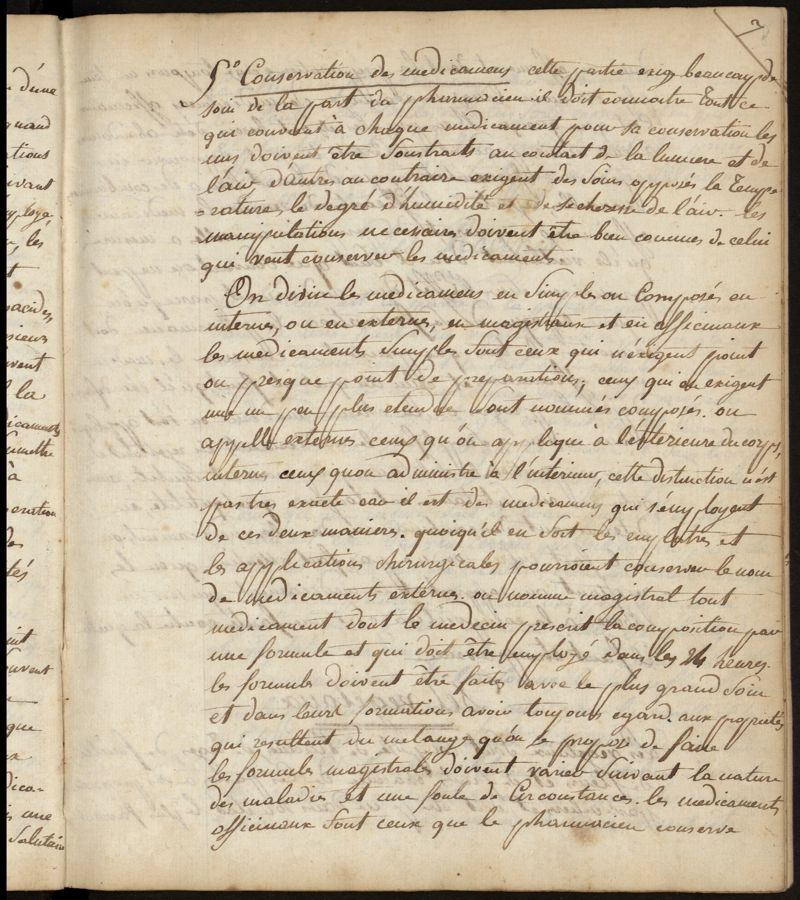 7
5° Conservation des medicamens cette partie exige beaucoup de
soin de la part du pharmacien il doit connoitre tout ce
qui convient à chaque medicament pour sa conservation les
uns doivent être soustraits au contact de la lumiere et de
l'air d'autres au contraire exigent des soins opposés la tempe
=rature, le degré d'humidité et de secheresse de l'air. les
manipulations necessaires doivent être bien connues de celui
qui veut conserver les medicaments
On divise les medicamens en simples ou composés en
internes, ou en externes, en magistraux et en officinaux
les medicaments simples sont ceux qui n'exigent point
ou presque point de preparations; ceux qui en exigent
une un peu plus etendue sont nommés composés. on
appelle externes ceux qu'on applique à l'exterieure du corps,
internes ceux quon administre à l'interieur, cette distinction n'est
pas tres exacte car il est des medicamens qui s'employent
de ces deux manieres. quoiqu'il en soit les emplatres et
les applications chirurgicales pourroient conserver le nom
de medicaments externes. on nomme magistral tout
medicament dont le medecin prescrit la composition par
une formule et qui doit être employé dans les 24 heures.
les formules doivent être faites avec le plus grand soin
et dans leurs formations avoir toujours egard aux proprietés
qui resultent du melange qu'on se propose de faire
les formules magistrales doivent varier suivant la nature
des maladies et une foule de circonstances. les medicaments
officinaux sont ceux que le pharmacien conserve
d'une
quand
ations
uivant
les
t
acides
sieurs
vent
la
dicaments
à
eration
de
tés
uvent
que
dica-
une
salutaire